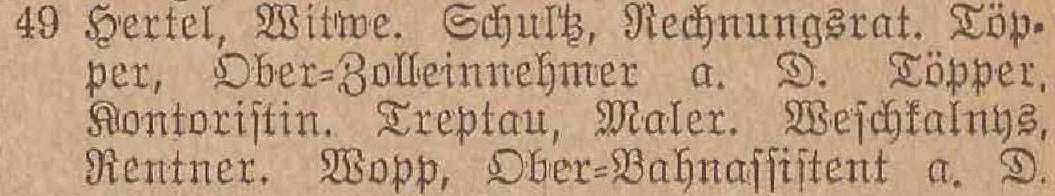 49 Hertel, Witwe. Schultz, Rechnungsrat. Töp-
per, Ober-Zolleinnehmer a. D. Töpper,
Kontoristin. Treptau, Maler. Weschkalnys,
Rentner. Wopp, Ober-Bahnassistent a. D.